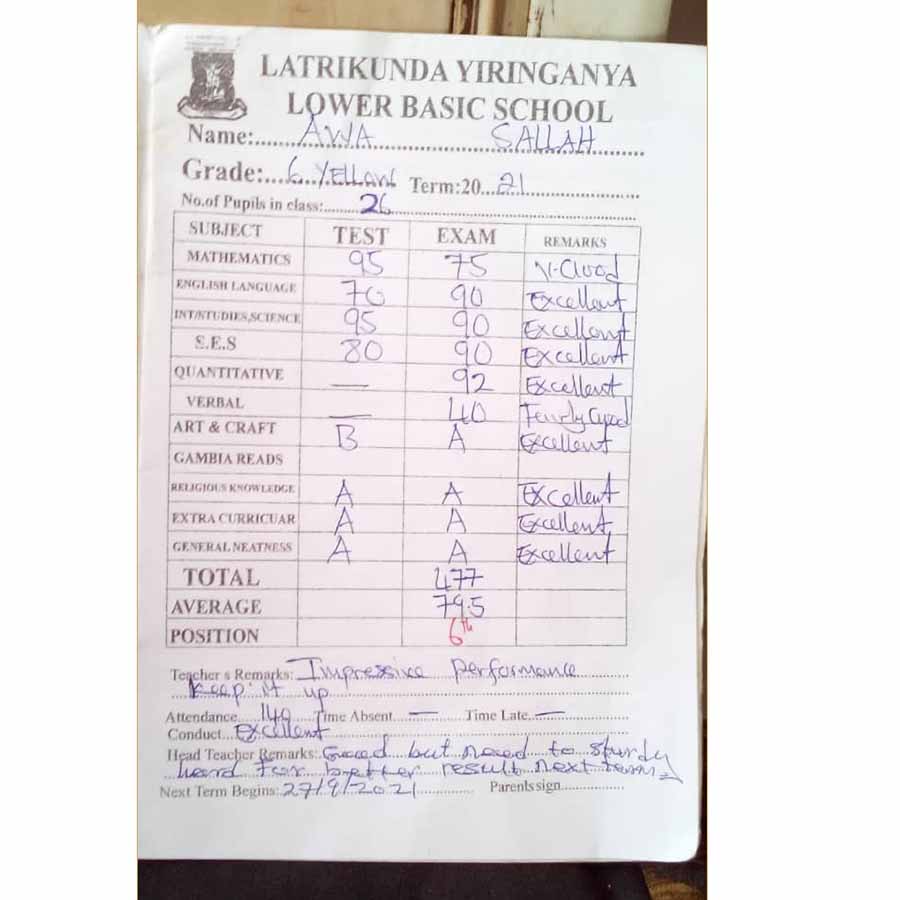 LATRIKUNDA YIRINGANYA
LOWER BASIC SCHOOL
Name:....AWA SALLAH....
Grade:...6 YELLOW Term:20...21...
No.of Pupils in class:.......26.......
SUBJECT TEST EXAM REMARKS
MATHEMATICS 95 75 V.Good
ENGLISH LANGUAGE 70 90 Excellent
INT/STUDIES,SCIENCE 95 90 Excellent
S.E.S 80 90 Excellent
QUANTITATIVE — 92 Excellent
VERBAL — 40 Fairly Good
ART & CRAFT B A Excellent
GAMBIA READS
RELIGIOUS KNOWLEDGE A A Excellent
EXTRA CURRICUAR A A Excellent
GENERAL NEATNESS A A Excellent
TOTAL 477
AVERAGE 79.5
POSITION 6th
Teacher s Remarks: Impressive performance
Keep it up
Attendance....140 Time Absent...— Time Late...—
Conduct...Excellent
Head Teacher Remarks: Good but need to sturdy
heard for better result next term
Next Term Begins: 27/9/2021 Parents sign